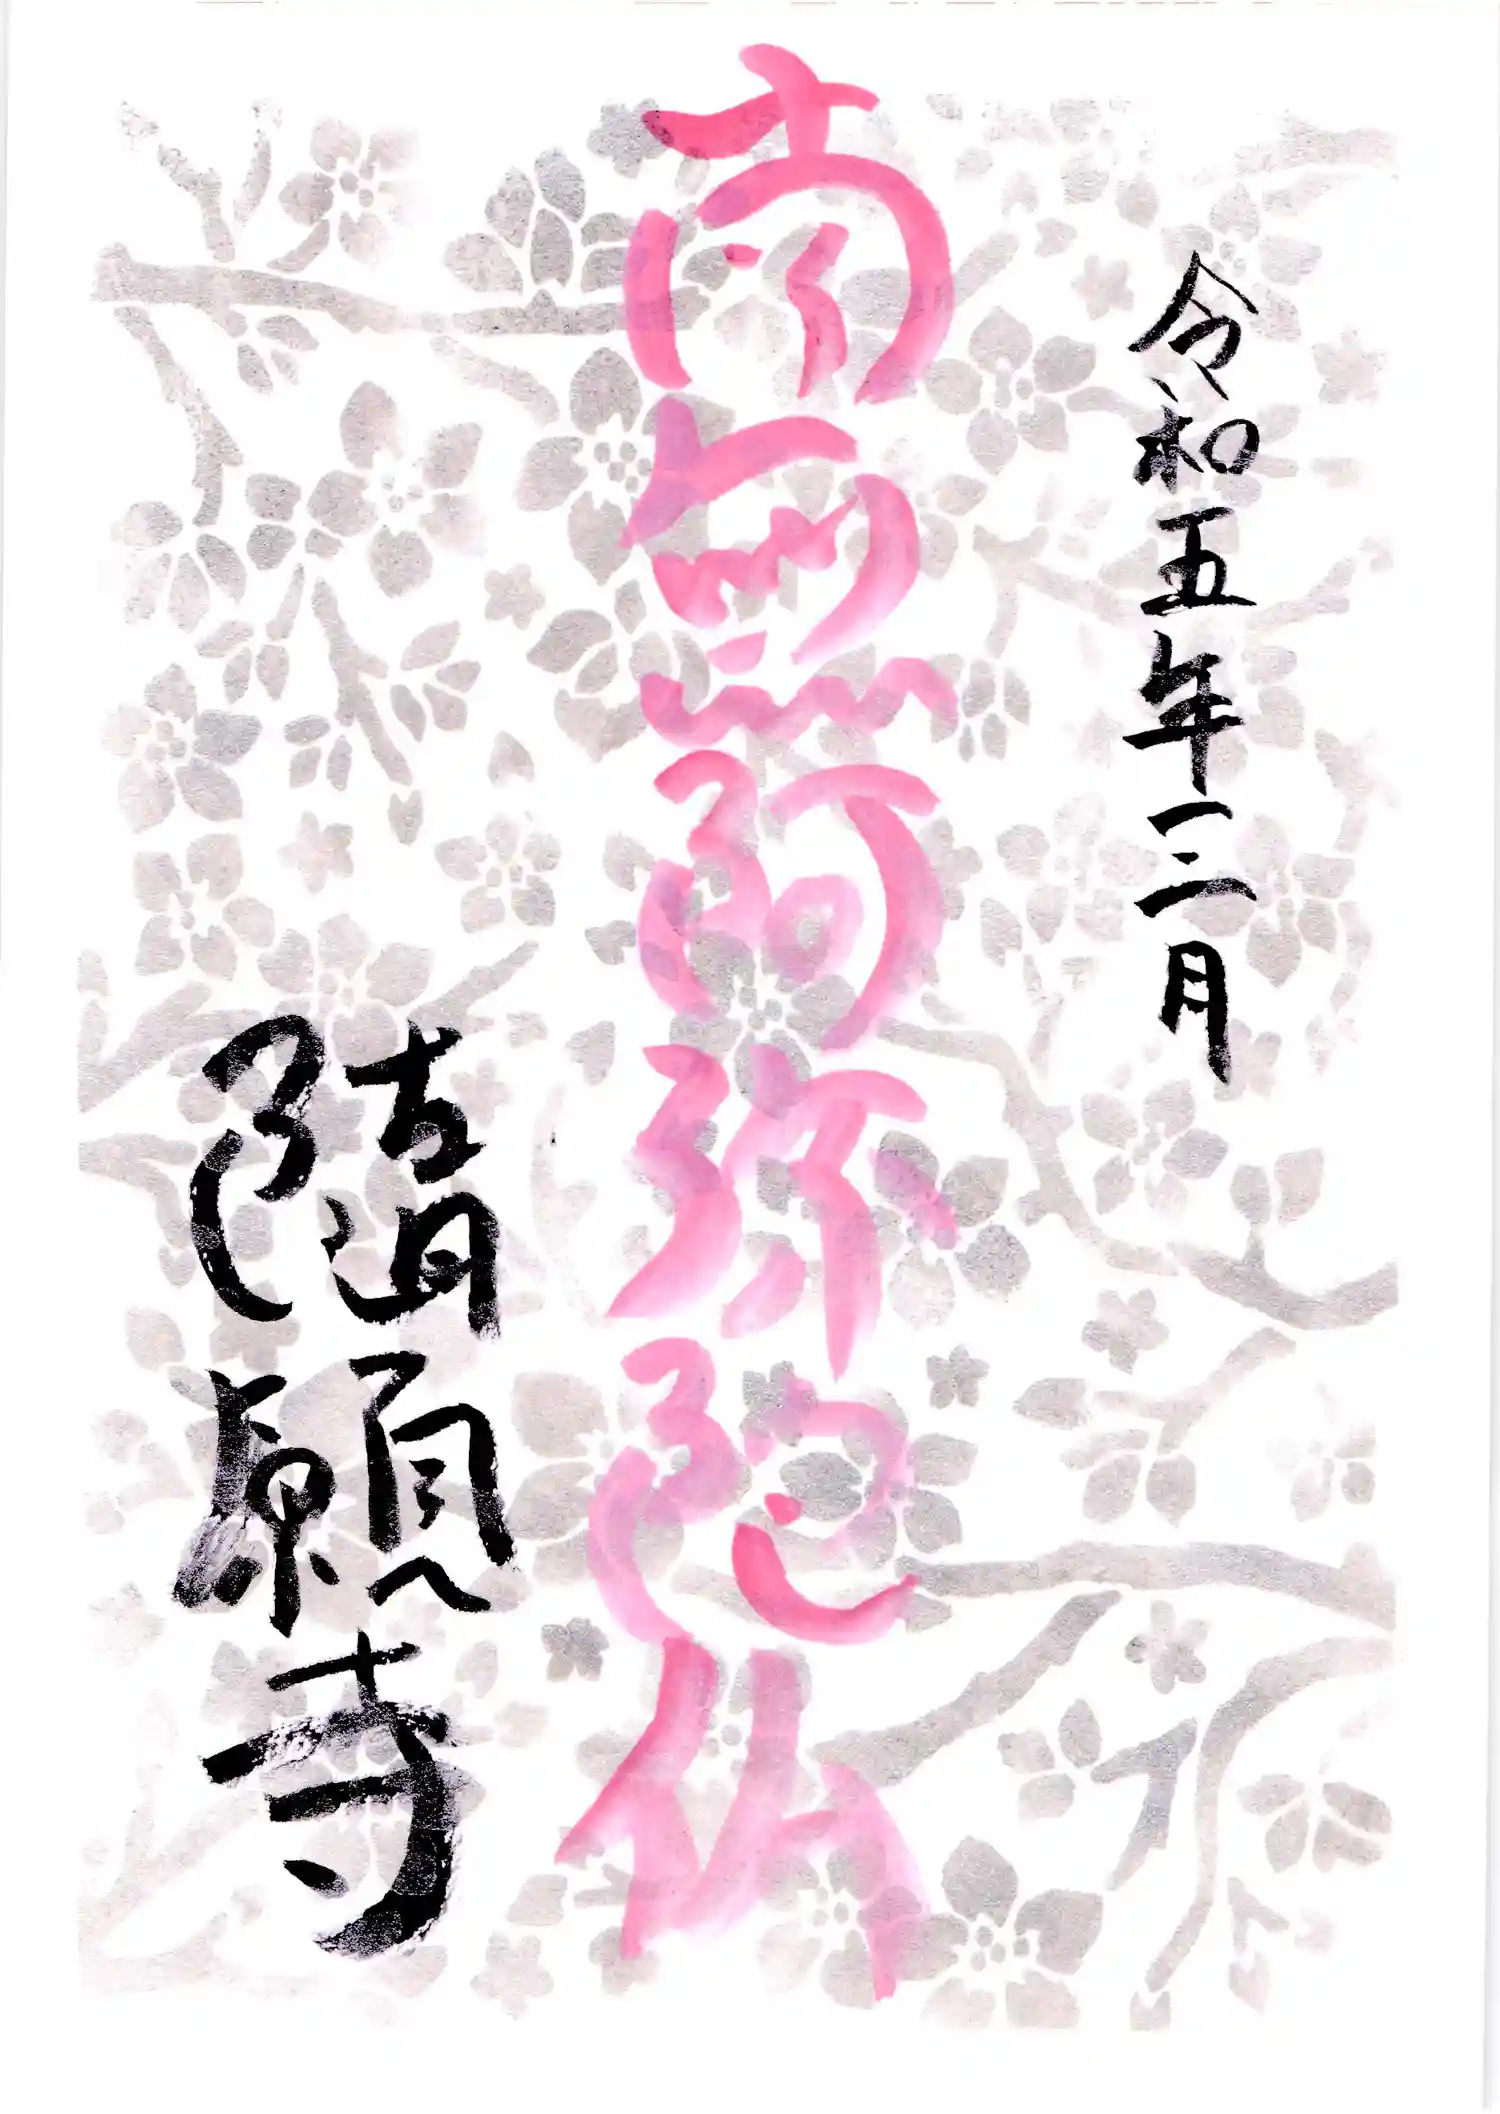 令和五年三月
南無阿弥陀仏
随願寺